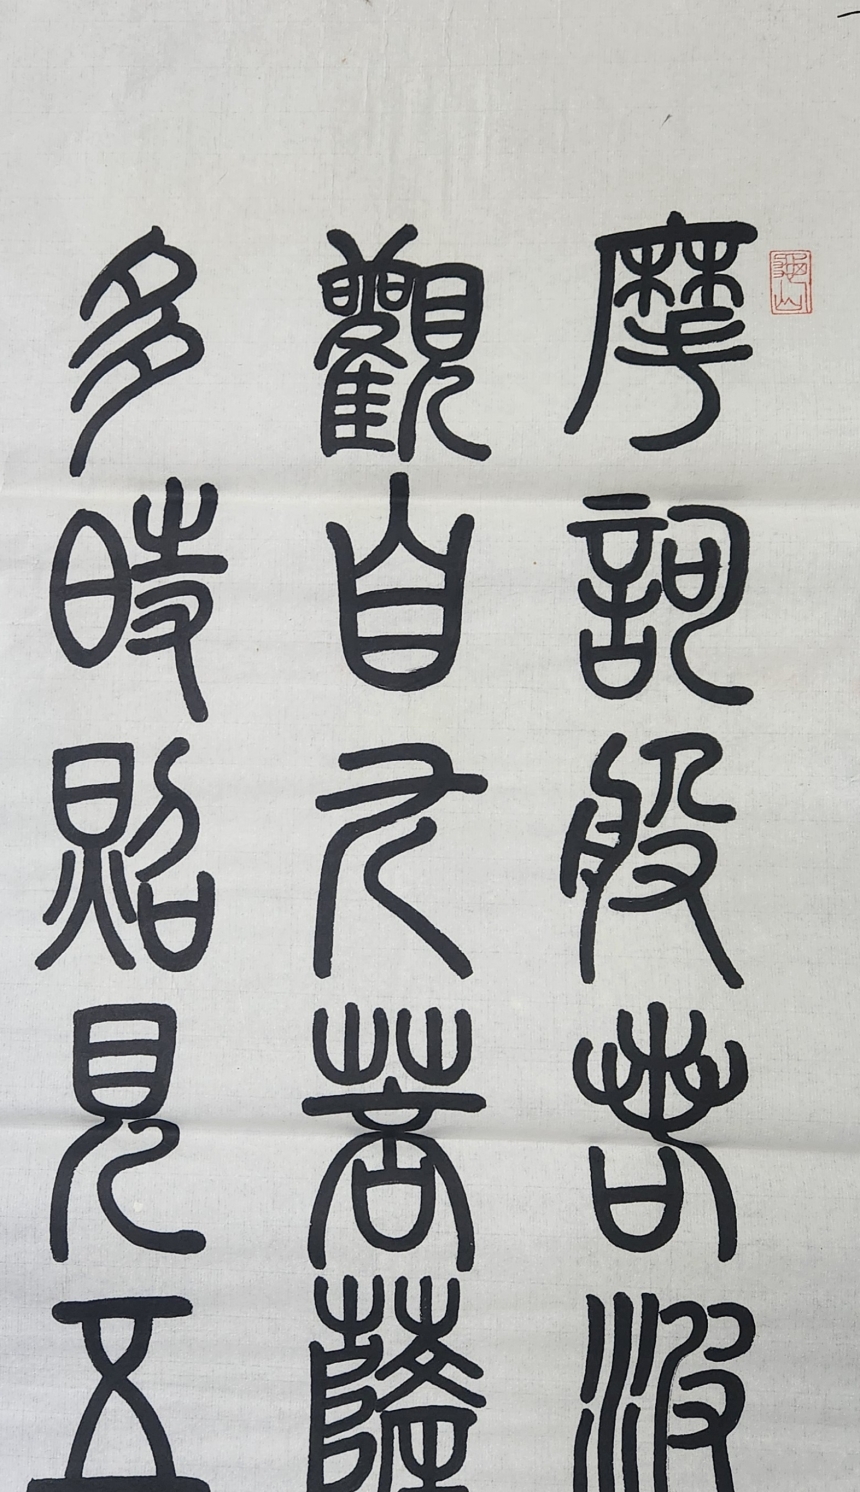 摩訶般若波
觀自在菩薩
多時照見五